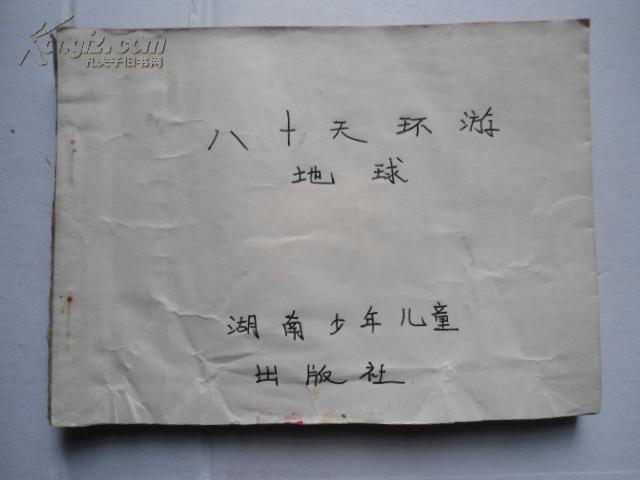 Kongfz.com
孔夫子旧书网
八十天环游
地球
湖南少年儿童
出版社